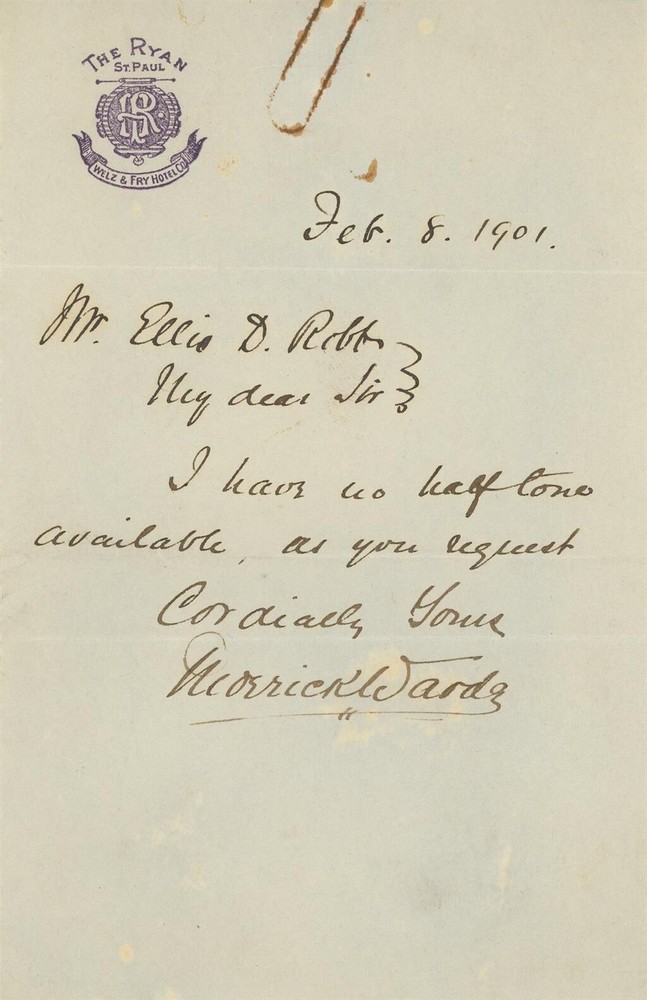 THE RYAN
ST. PAUL
R
WELZ & FRY HOTEL CO
Feb. 8. 1901.
Mr. Ellis D. Robb
My dear Sir
I have no half tone
available, as you request
Cordially Yours
Frederick Warde